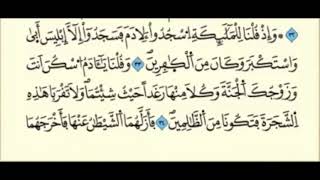 وَإِذْ قُلْنَا لِلْمَلَٰٓئِكَةِ ٱسْجُدُوا۟ لِأٓدَمَ فَسَجَدُوٓا۟ إِلَّآ إِبْلِيسَ أَبَىٰ
وَٱسْتَكْبَرَ وَكَانَ مِنَ ٱلْكَٰفِرِينَ وَقُلْنَا يَٰٓـَٔادَمُ ٱسْكُنْ أَنتَ
وَزَوْجُكَ ٱلْجَنَّةَ وَكُلَا مِنْهَا رَغَدًا حَيْثُ شِئْتُمَا وَلَا تَقْرَبَا هَٰذِهِ
ٱلشَّجَرَةَ فَتَكُونَا مِنَ ٱلظَّٰلِمِينَ فَأَزَلَّهُمَا ٱلشَّيْطَٰنُ عَنْهَا فَأَخْرَجَهُمَا